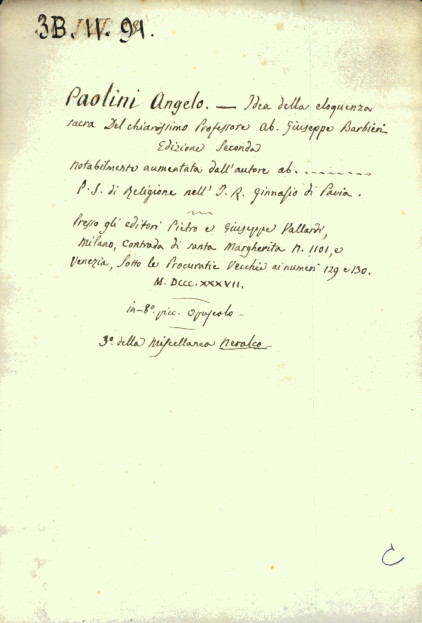 3B. IV. 91.
Paolini Angelo. — Idea della eloquenza
sacra Del chiarissimo Professore Ab. Giuseppe Barbieri
Edizione Seconda
Notabilmente aumentata dall'autore ab. --------
P. S. di Religione nell' I. R. Ginnasio di Pavia.
Presso gli editori Pietro e Giuseppe Vallardi,
Milano, contrada di santa Margherita N. 1101, e
Venezia, sotto le Procuratie Vecchie ai numeri 129 e 130.
M. DCCC. XXXVII.
in-8° picc. opuscolo -
3° della Miscellanea
C